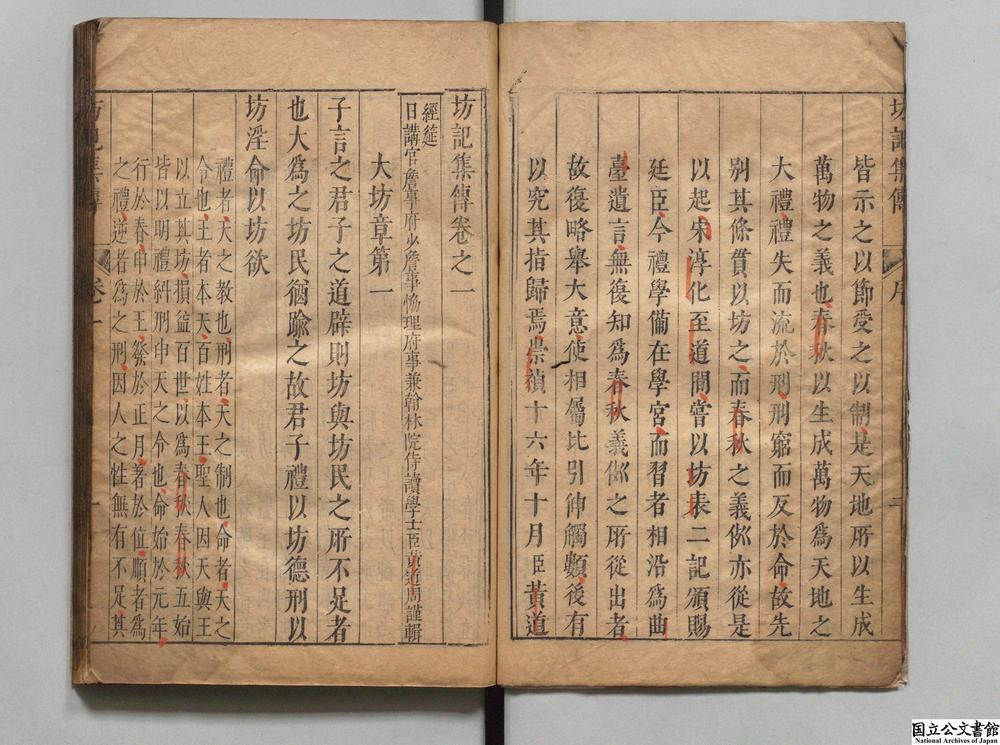 坊記集傳 序 二
皆示之以節愛之以制是天地所以生成
萬物之義也春秋以生成萬物為天地之
大禮禮失而流於刑刑窮而反於命故先
別其條貫以坊之而春秋之義例亦從是
以起宋淳化至道間嘗以坊表二記頒賜
廷臣今禮學備在學宮而習者相沿為曲
臺遺言無復知為春秋義例之所從出者
故復略舉大意使相屬比引伸觸類後有
以究其指歸焉崇禎十六年十月臣黃道
坊記集傳卷之一
經筵
日講官詹事府少詹事協理府事兼翰林院侍讀學士臣黃道周謹輯
大坊章第一
子言之君子之道辟則坊與坊民之所不足者
也大為之坊民猶踰之故君子禮以坊德刑以
坊淫命以坊欲
禮者天之教也刑者天之制也命者天之
令也王者本天百姓本王聖人因天與王
以立其坊損益百世以為春秋春秋五始
皆以明禮糾刑申天之令也命始於元年
行於春申於王發於正月著於位順者為
之禮逆者為之刑因人之性無有不足其
坊記集傳 卷一 一
国立公文書館
National Archives of Japan